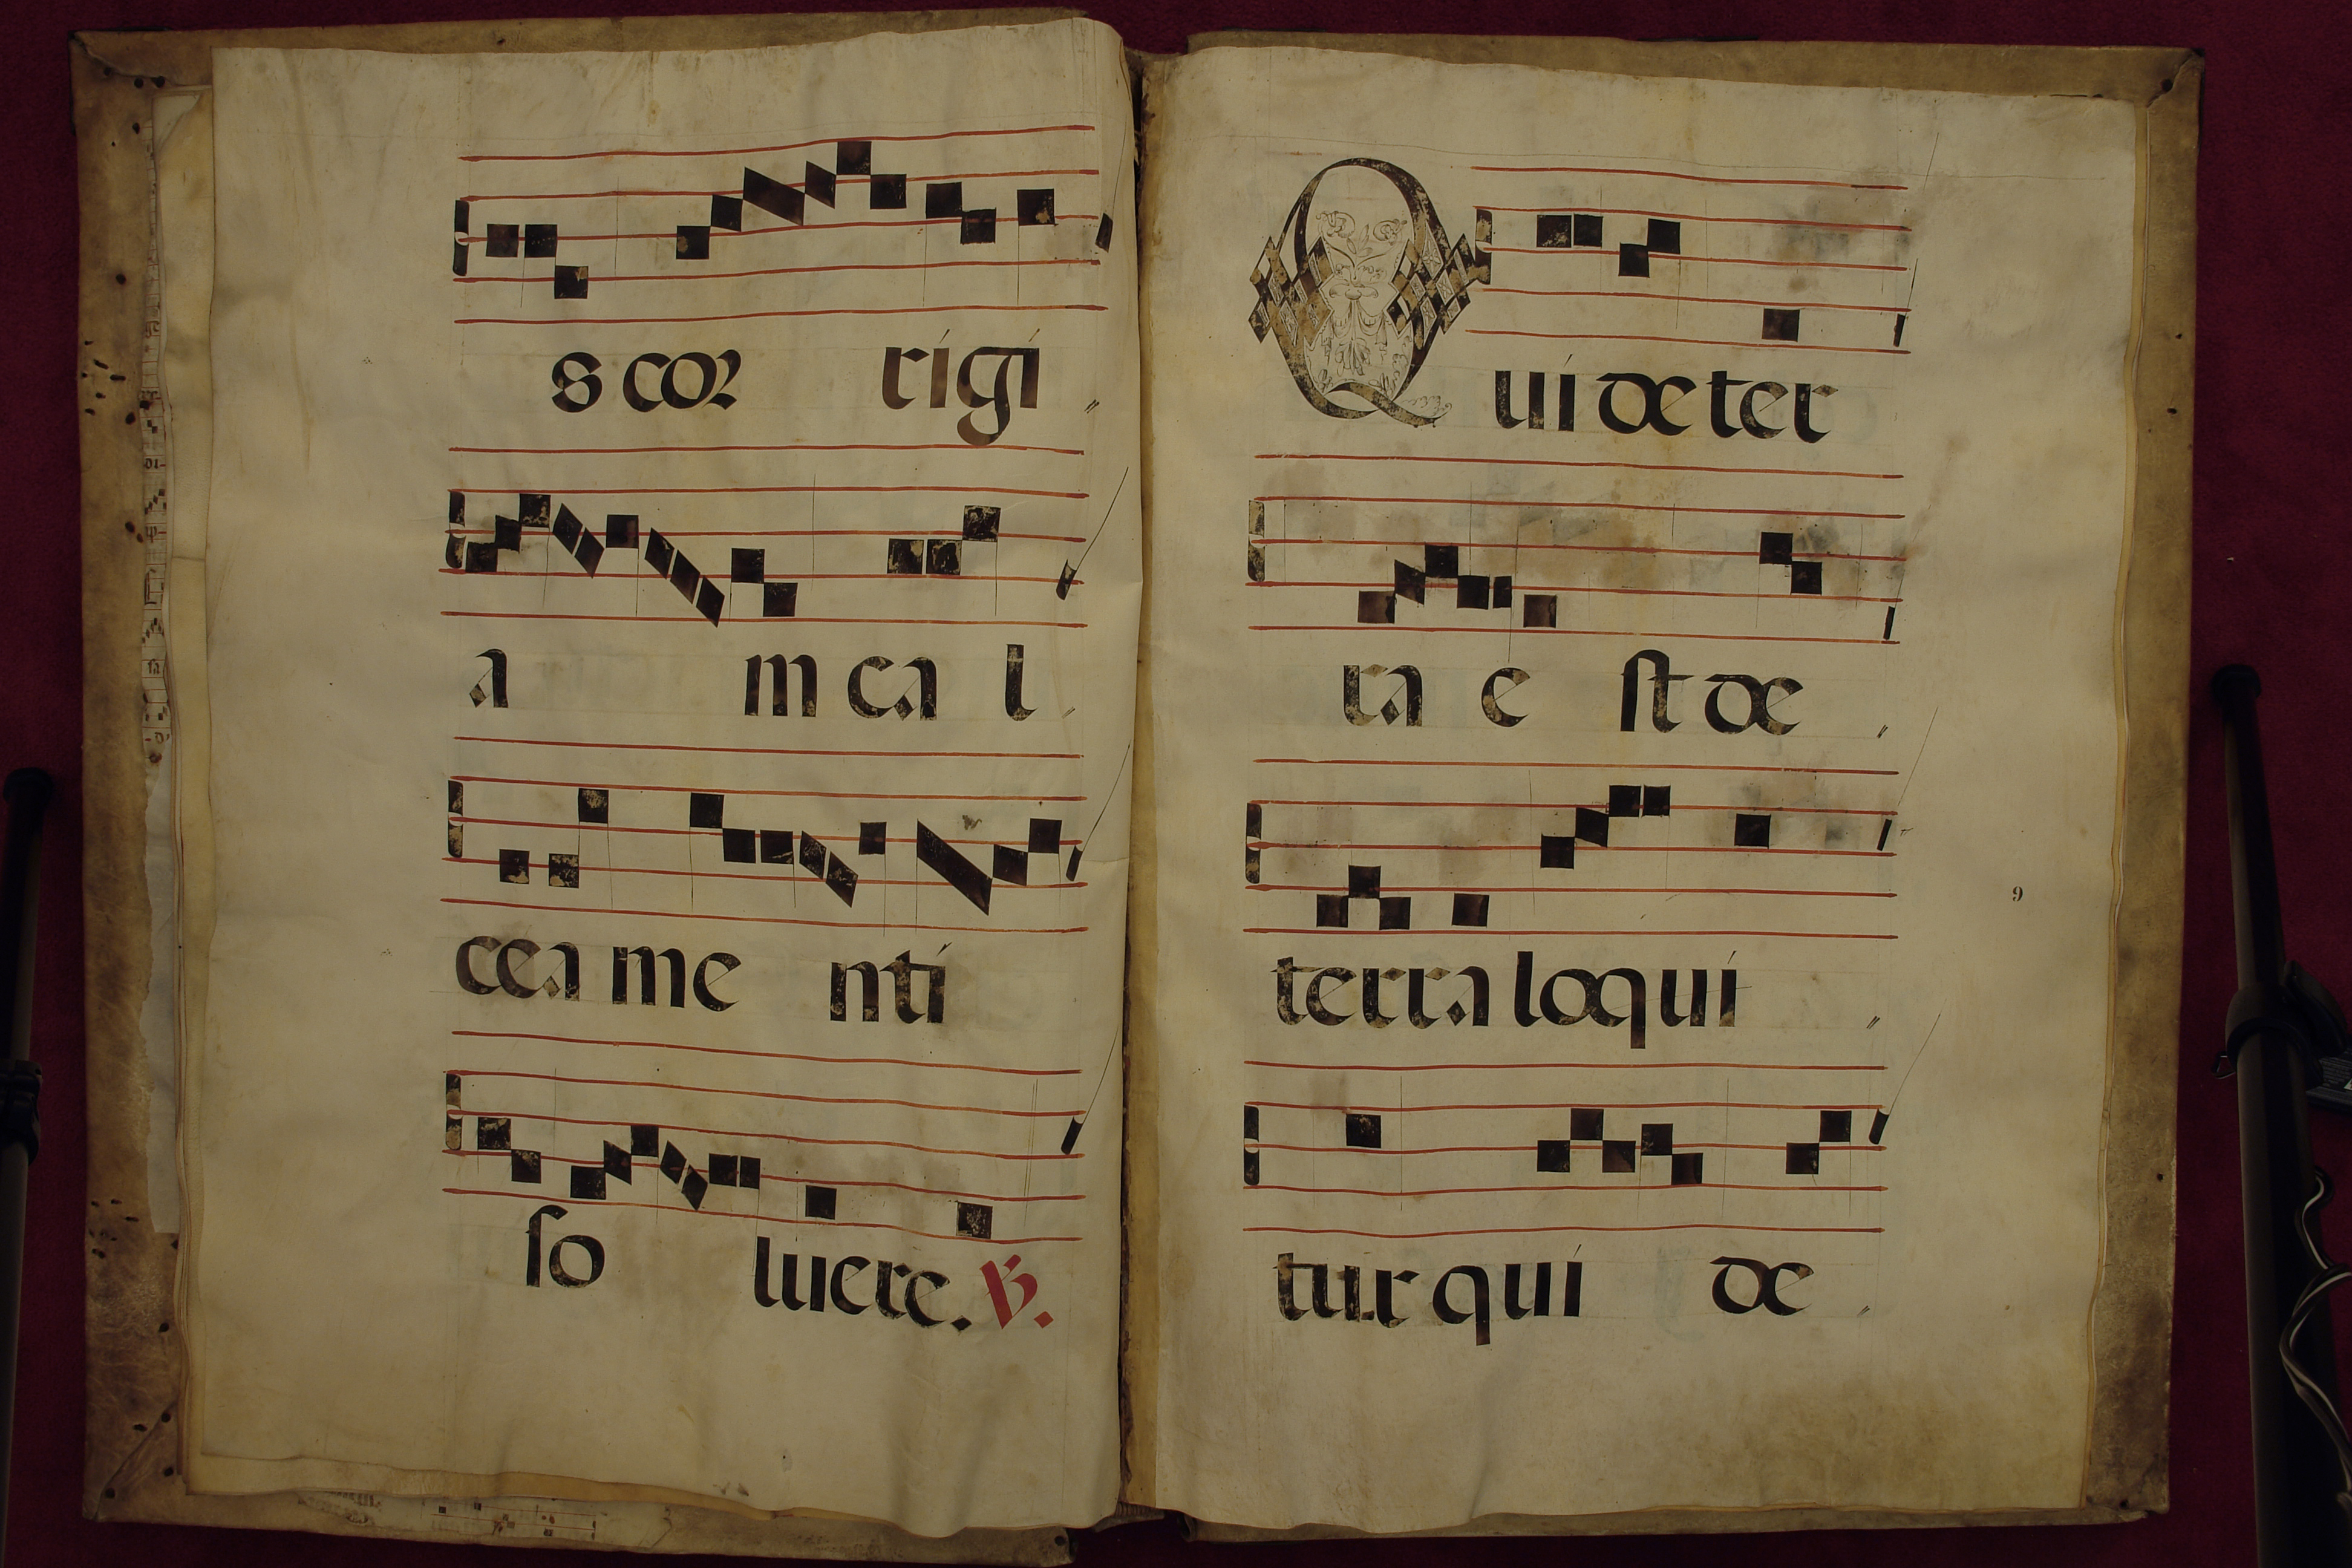 s cor rigi
a m ca l
cea me nti
so luere. V.
Qui de ter
ra e st de
terra loqui
9
tur qui de